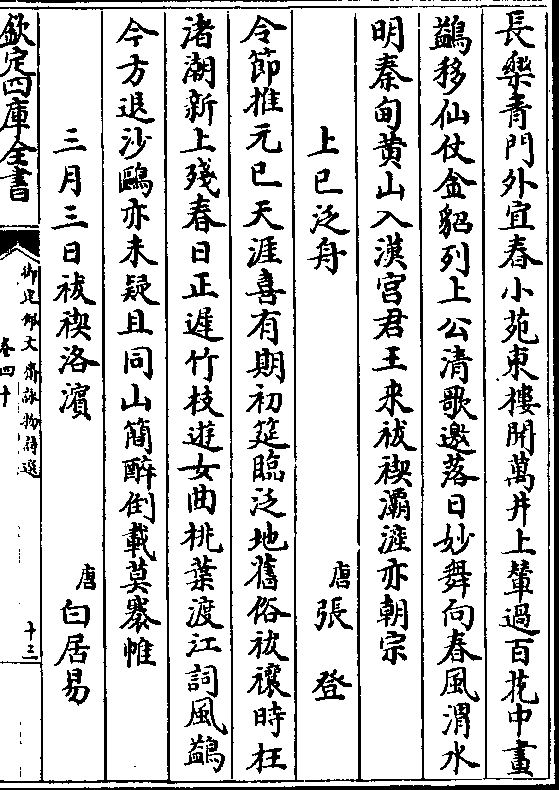 長樂青門外宜春小苑東樓開萬井上輦過百花中畫
鷁移仙仗金貂列上公清歌邀落日妙舞向春風渭水
明秦甸黄山入漢宫君王来祓禊灞滻亦朝宗
上巳泛舟 唐張登
令節推元巳天涯喜有期初筵臨泛地舊俗祓禳時枉
渚湖新上殘春日正遲竹枝遊女曲桃葉渡江詞風鷁
今方退沙鷗亦未疑且同山簡醉倒載莫褰帷
三月三日祓禊洛濱 唐白居易
欽定四庫全書
御定佩文齋詠物詩選
卷四十
十三